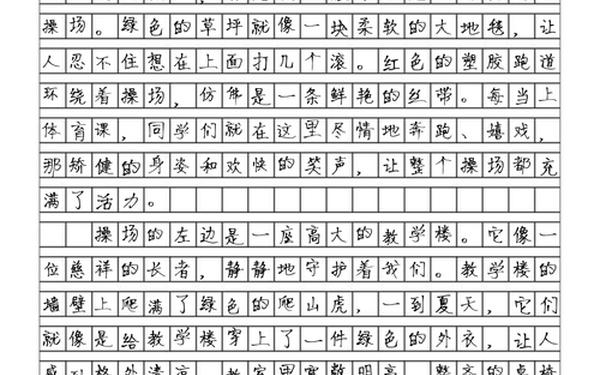 操场。绿色的草坪就像一块柔软的大地毯，让
人忍不住想在上面打几个滚。红色的塑胶跑道
环绕着操场，仿佛是一条鲜艳的丝带。每当上
体育课，同学们就在这里尽情地奔跑、嬉戏，
那矫健的身姿和欢快的笑声，让整个操场都充
满了活力。
操场的左边是一座高大的教学楼。它像一
位慈祥的长者，静静地守护着我们。教学楼的
墙壁上爬满了绿色的爬山虎，一到夏天，它们
就像是给教学楼穿上了一件绿色的外衣，让人
感到格外清凉。教室里宽敞明亮，整齐的桌椅